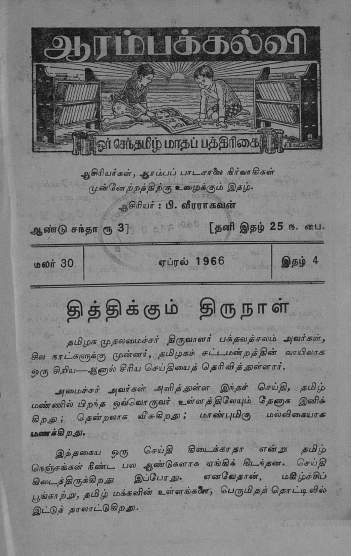 ஆரம்பக்கல்வி
ஓர் செந்தமிழ் மாதப் பத்திரிகை
ஆசிரியர்கள், ஆரம்பப் பாடசாலை நிர்வாகிகள்
முன்னேற்றத்திற்கு உழைக்கும் இதழ்.
ஆசிரியர் : பி. வீரராகவன்
ஆண்டு சந்தா ரூ 3] [தனி இதழ் 25 ந. பை.
மலர் 30 ஏப்ரல் 1966 இதழ் 4
தித்திக்கும் திருநாள்
தமிழக முதலமைச்சர் திருவாளர் பக்தவத்சலம் அவர்கள்,
சில நாட்களுக்கு முன்னர், தமிழகச் சட்டமன்றத்தின் வாயிலாக
ஒரு சிறிய—ஆனால் சீரிய செய்தியைத் தெரிவித்துள்ளார்.
அமைச்சர் அவர்கள் அளித்துள்ள இந்தச் செய்தி, தமிழ்
மண்ணில் பிறந்த ஒவ்வொருவர் உள்ளத்திலேயும் தேனாக இனிக்
கிறது ; தென்றலாக வீசுகிறது ; மாண்புமிகு மல்லிகையாக
மணக்கிறது.
இத்தகைய ஒரு செய்தி கிடைக்காதா என்று தமிழ்
நெஞ்சங்கள் நீண்ட பல ஆண்டுகளாக ஏங்கிக் கிடந்தன. செய்தி
கிடைத்திருக்கிறது இப்போது. எனவேதான், மகிழ்ச்சிப்
பூங்காற்று, தமிழ் மக்களின் உள்ளங்களை, பெருமிதத் தொட்டிலில்
இட்டுத் தாலாட்டுகிறது.